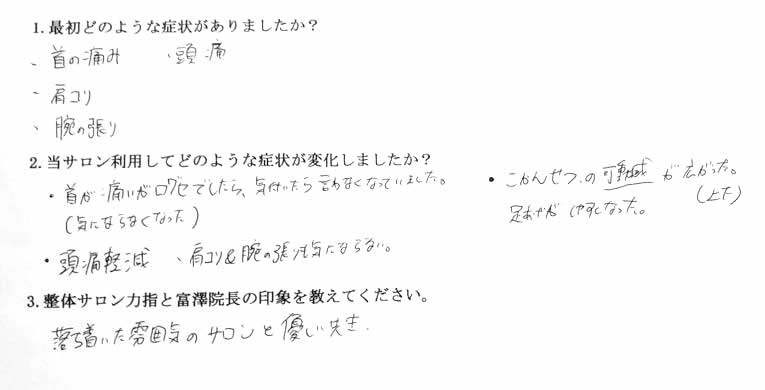 1. 最初どのような症状がありましたか?
、首の痛み ・頭痛
・肩コリ
、腕の張り
2. 当サロン利用してどのような症状が変化しましたか?
・首が痛いが口グセでしたら、気付いたら言わなくなっていました。
(気にならなくなった)
・頭痛軽減 、肩コリ&腕の張りも気にならない。
・こかんせつの可動域が広がった。
(上下)
足あげが しやすくなった。
3. 整体サロン力指と富澤院長の印象を教えてください。
落ち着いた雰囲気のサロンと優しい先生.